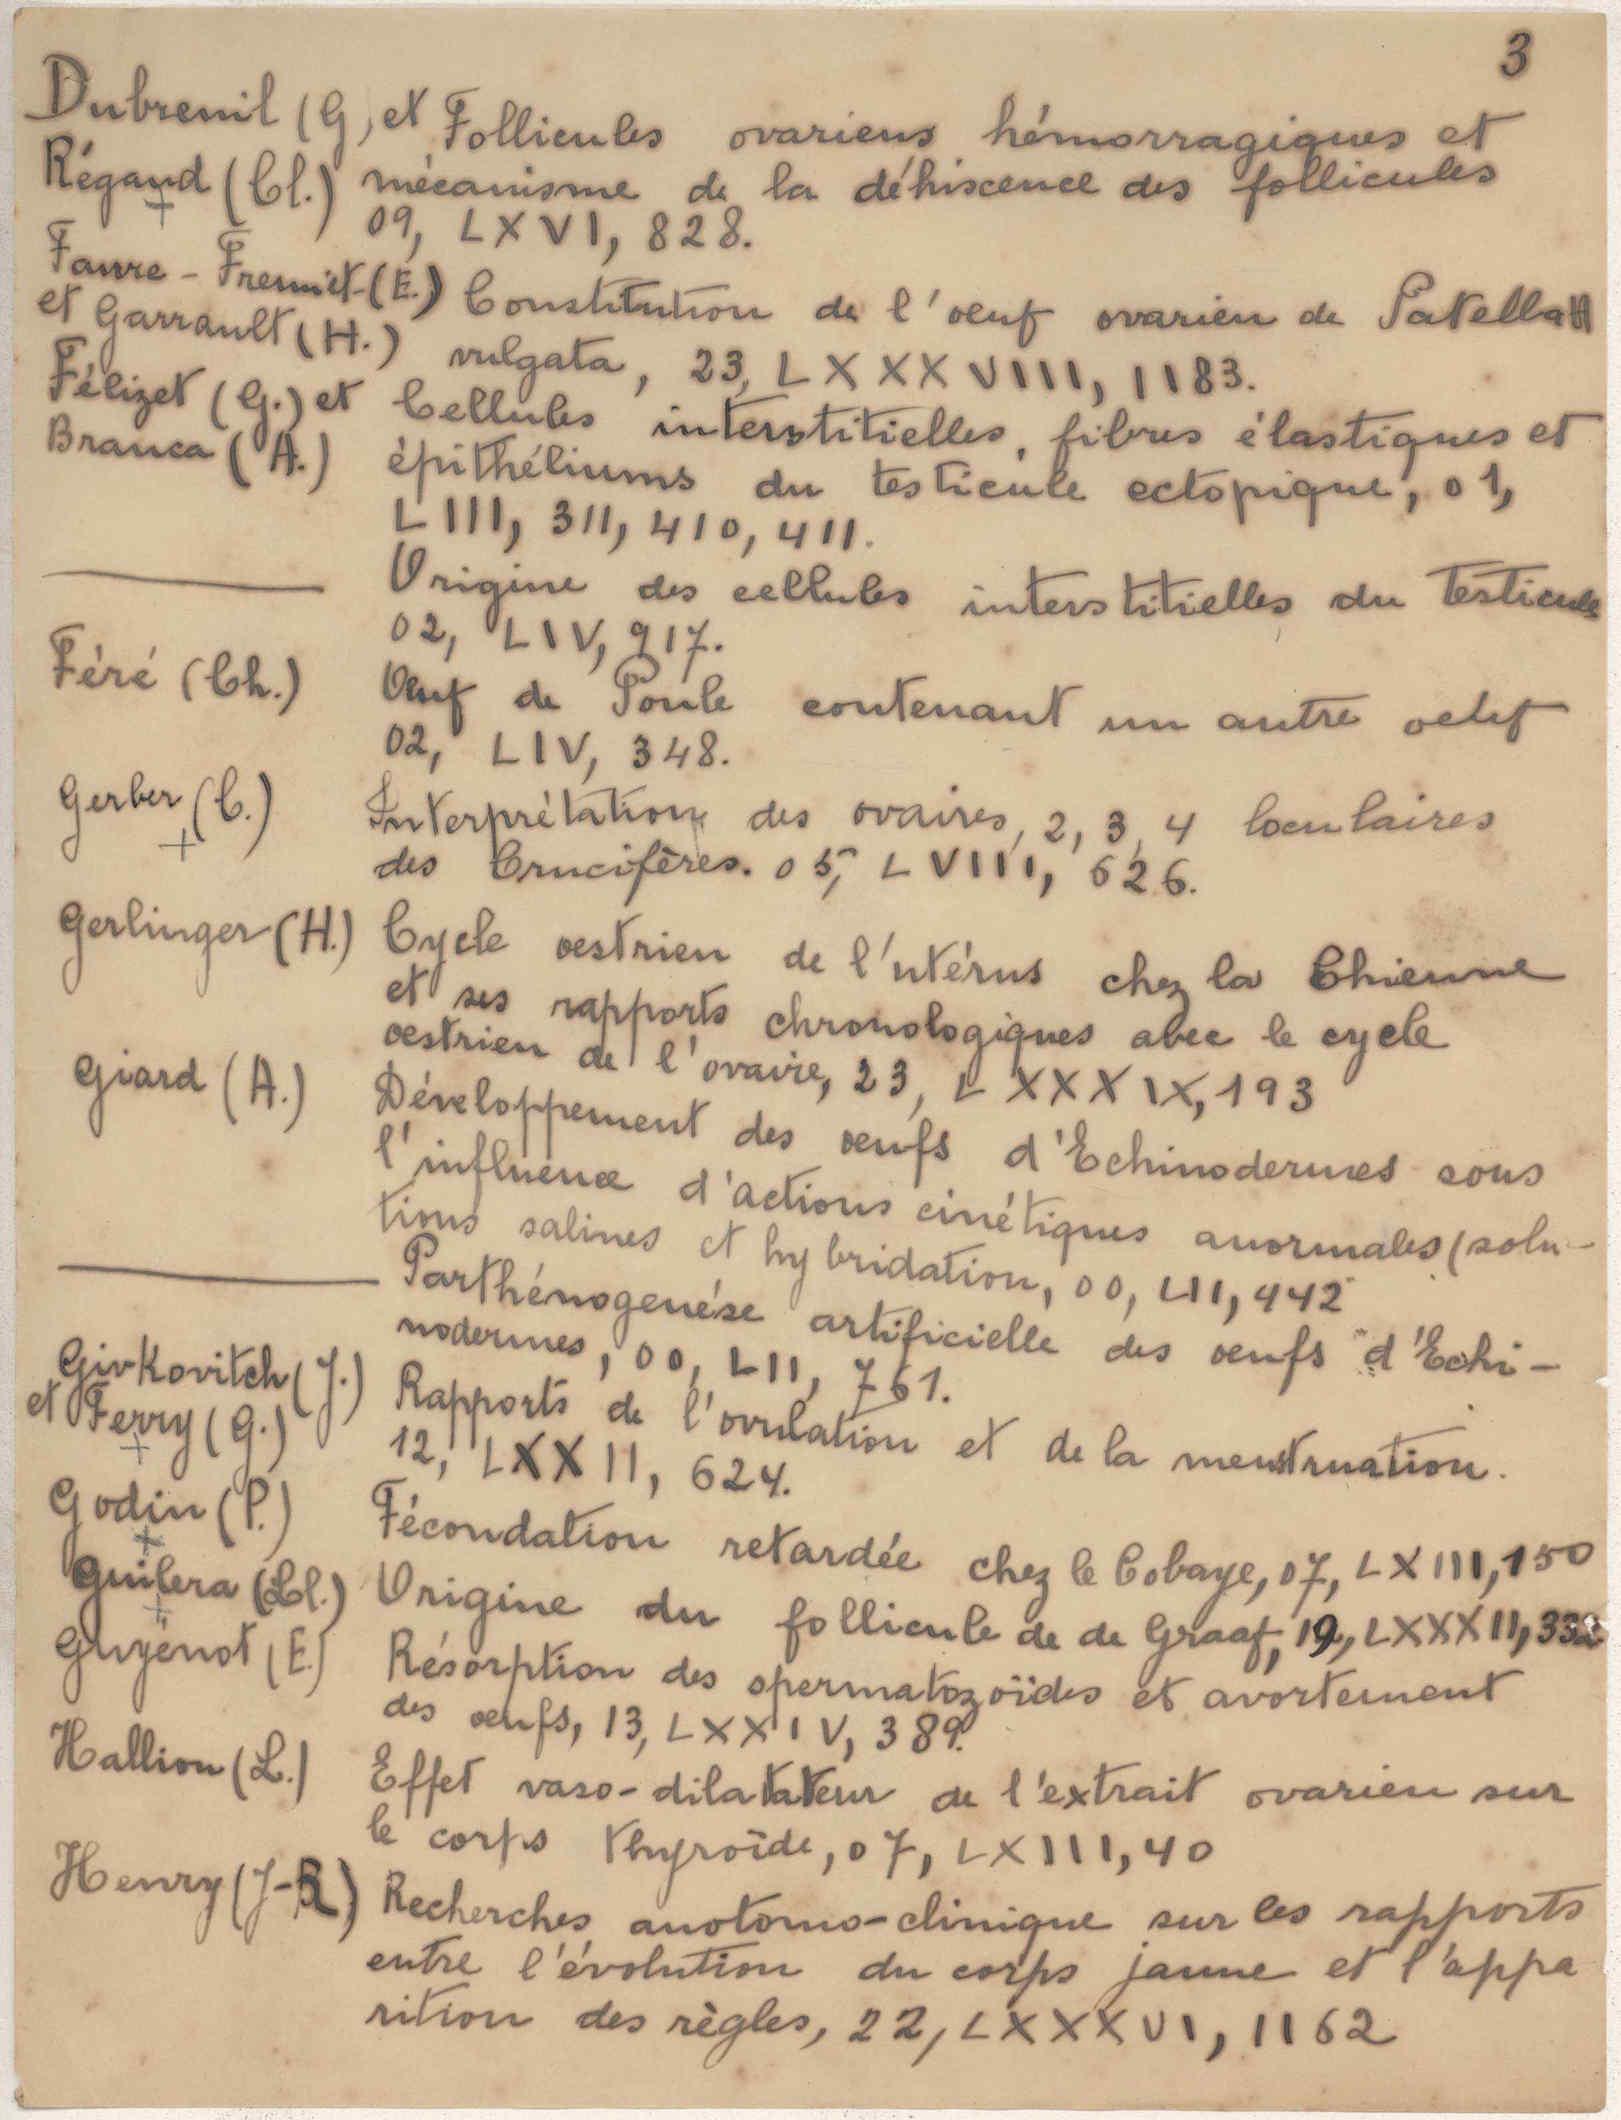 3
Dubreuil (G) et Follicules ovariens hémorragiques et
Régaud (Cl.) mécanisme de la déhiscence des follicules
09, LXVI, 828.
Faure-Fremiet (E.) Constitution de l'oeuf ovarien de Patella
et Garrault (H.) vulgata, 23, LXXXVIII, 1183.
Félizet (G.) et Cellules interstitielles, fibres élastiques et
Branca (A.) épithéliums du testicule ectopique, 01,
LIII, 311, 410, 411.
Origine des cellules interstitielles du testicule
02, LIV, 917.
Féré (Ch.) Oeuf de Poule contenant un autre oeuf
02, LIV, 348.
Gerber (C.) Interprétation des ovaires, 2, 3, 4 loculaires
des Crucifères. 05, LVIII, 626.
Gerlinger (H.) Cycle oestrien de l'utérus chez la Chienne
et ses rapports chronologiques avec le cycle
oestrien de l'ovaire, 23, LXXXIX, 193
Giard (A.) Développement des oeufs d'Echinodermes sous
l'influence d'actions cinétiques anormales (solu-
tions salines et hybridation, 00, LII, 442
Parthénogenése artificielle des oeufs d'Echi-
nodermes, 00, LII, 761.
Givkovitch (J.) Rapports de l'ovulation et de la menstruation.
et Ferry (G.) 12, LXXII, 624.
Godin (P.) Fécondation retardée chez le Cobaye, 07, LXIII, 150
Guilera (Ll.) Origine du follicule de de Graaf, 19, LXXXII, 332
Guyénot (E.) Résorption des spermatozoïdes et avortement
des oeufs, 13, LXXIV, 389.
Hallion (L.) Effet vaso-dilatateur de l'extrait ovarien sur
le corps thyroïde, 07, LXIII, 40
Henry (J-R) Recherches anotomo-clinique sur les rapports
entre l'évolution du corps jaune et l'appa
rition des règles, 22, LXXXVI, 1162